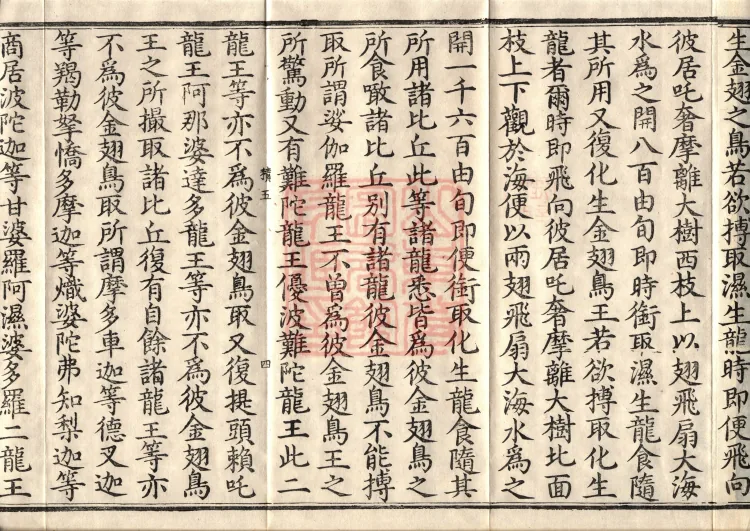 生金翅之鳥若欲搏取濕生龍時即便飛向
彼居吒奢摩離大樹西枝上以翅飛扇大海
水為之開八百由旬即時銜取濕生龍食隨
其所用又復化生金翅鳥王若欲搏取化生
龍者爾時即飛向彼居吒奢摩離大樹北面
枝上下觀於海便以兩翅飛扇大海水為之
開一千六百由旬即便銜取化生龍食隨其
所用諸比丘此等諸龍悉皆為彼金翅鳥之
所食噉諸比丘別有諸龍彼金翅鳥不能搏
取所謂娑伽羅龍王不曾為彼金翅鳥王之
所驚動又有難陀龍王優波難陀龍王此二
精五
四
龍王等亦不為彼金翅鳥取又復提頭賴吒
龍王阿那婆達多龍王等亦不為彼金翅鳥
王之所撮取諸比丘復有自餘諸龍王等亦
不為彼金翅鳥取所謂摩多車迦等德叉迦
等羯勒拏憍多摩迦等熾婆陀弗知梨迦等
商居波陀迦等甘婆羅阿濕婆多羅二龍王